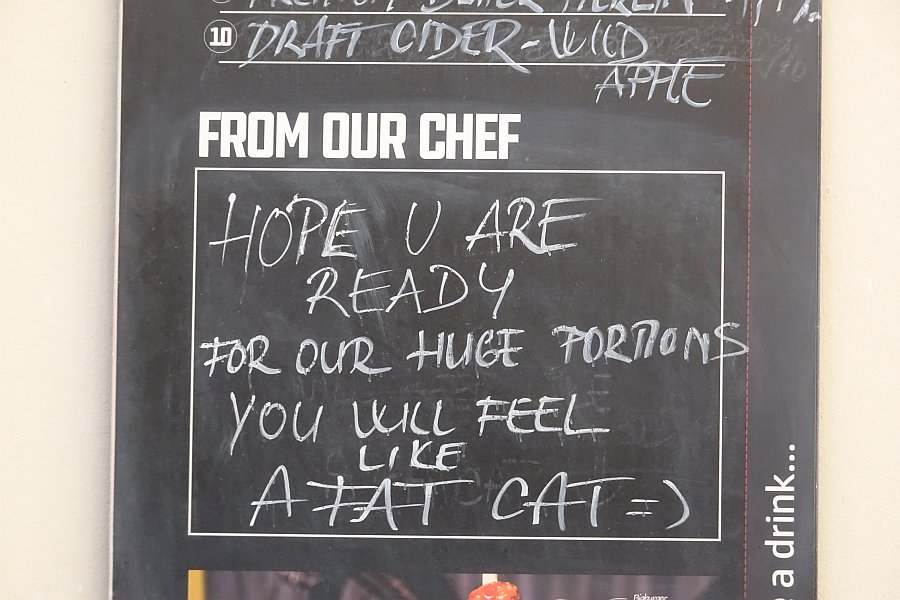 10 DRAFT CIDER-WILD
APPLE
FROM OUR CHEF
HOPE U ARE
READY
FOR OUR HUGE PORTIONS
YOU WILL FEEL
LIKE
A FAT CAT =)
a drink...
Bigburger